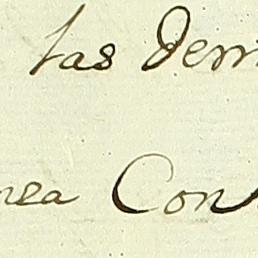 las Dem
nea Con